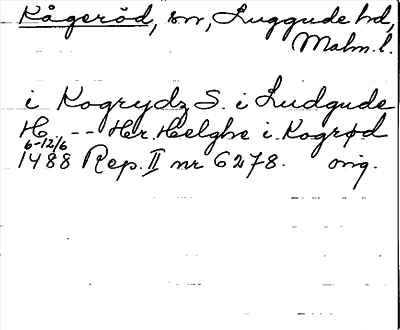 Kågeröd, sn, Luggude hd,
Malm. l.
i Kogrydz S. i Ludgude
H. -- Hr. Helghe i Kogrød
6-12/6
1488 Rep. II nr 6278. orig.